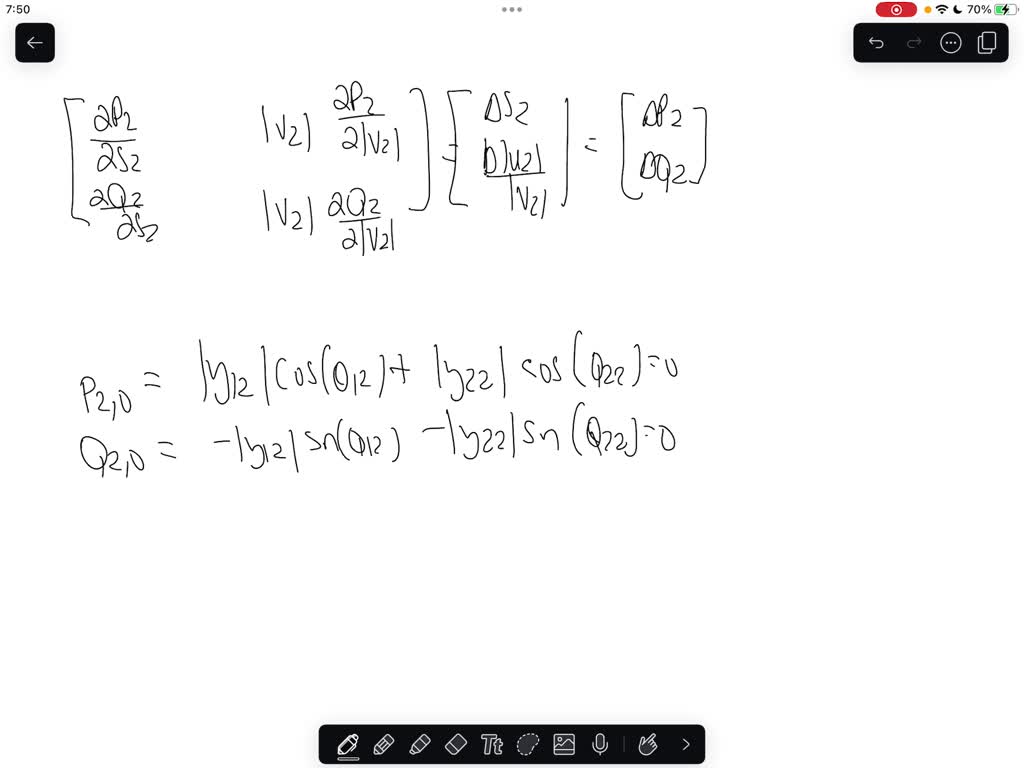 7:50
70%
[∂P2/∂S2 |V2| ∂P2/∂|V2|] = [ΔS2] = [ΔP2]
[∂Q2/∂S2 |V2| ∂Q2/∂|V2|] [Δ|V2|/|V2|] [ΔQ2]
P2,0 = |y12| cos(θ12) + |y22| cos(θ22) = 0
Q2,0 = -|y12| sn(θ12) -|y22| sn(θ22) = 0
Tt